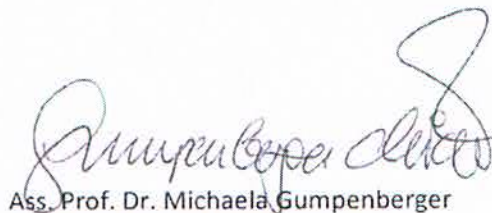 Gumpenberger
Ass. Prof. Dr. Michaela Gumpenberger